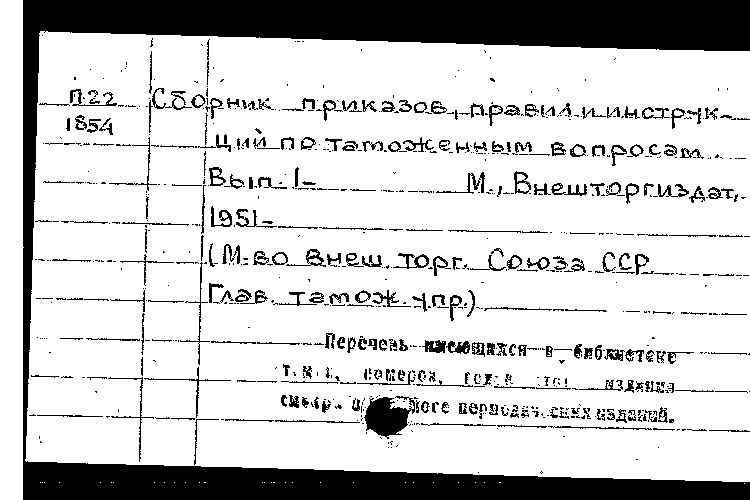 П22 Сборник приказов, правил и инструк-
1854 ций по таможенным вопросам.
Вып. 1- М., Внешторгиздат,
1951-
(М-во внеш. торг. Союза ССР
Глав. тамож. упр.)
Перечень имеющихся в библиотеке
номеров, издания
изданий.